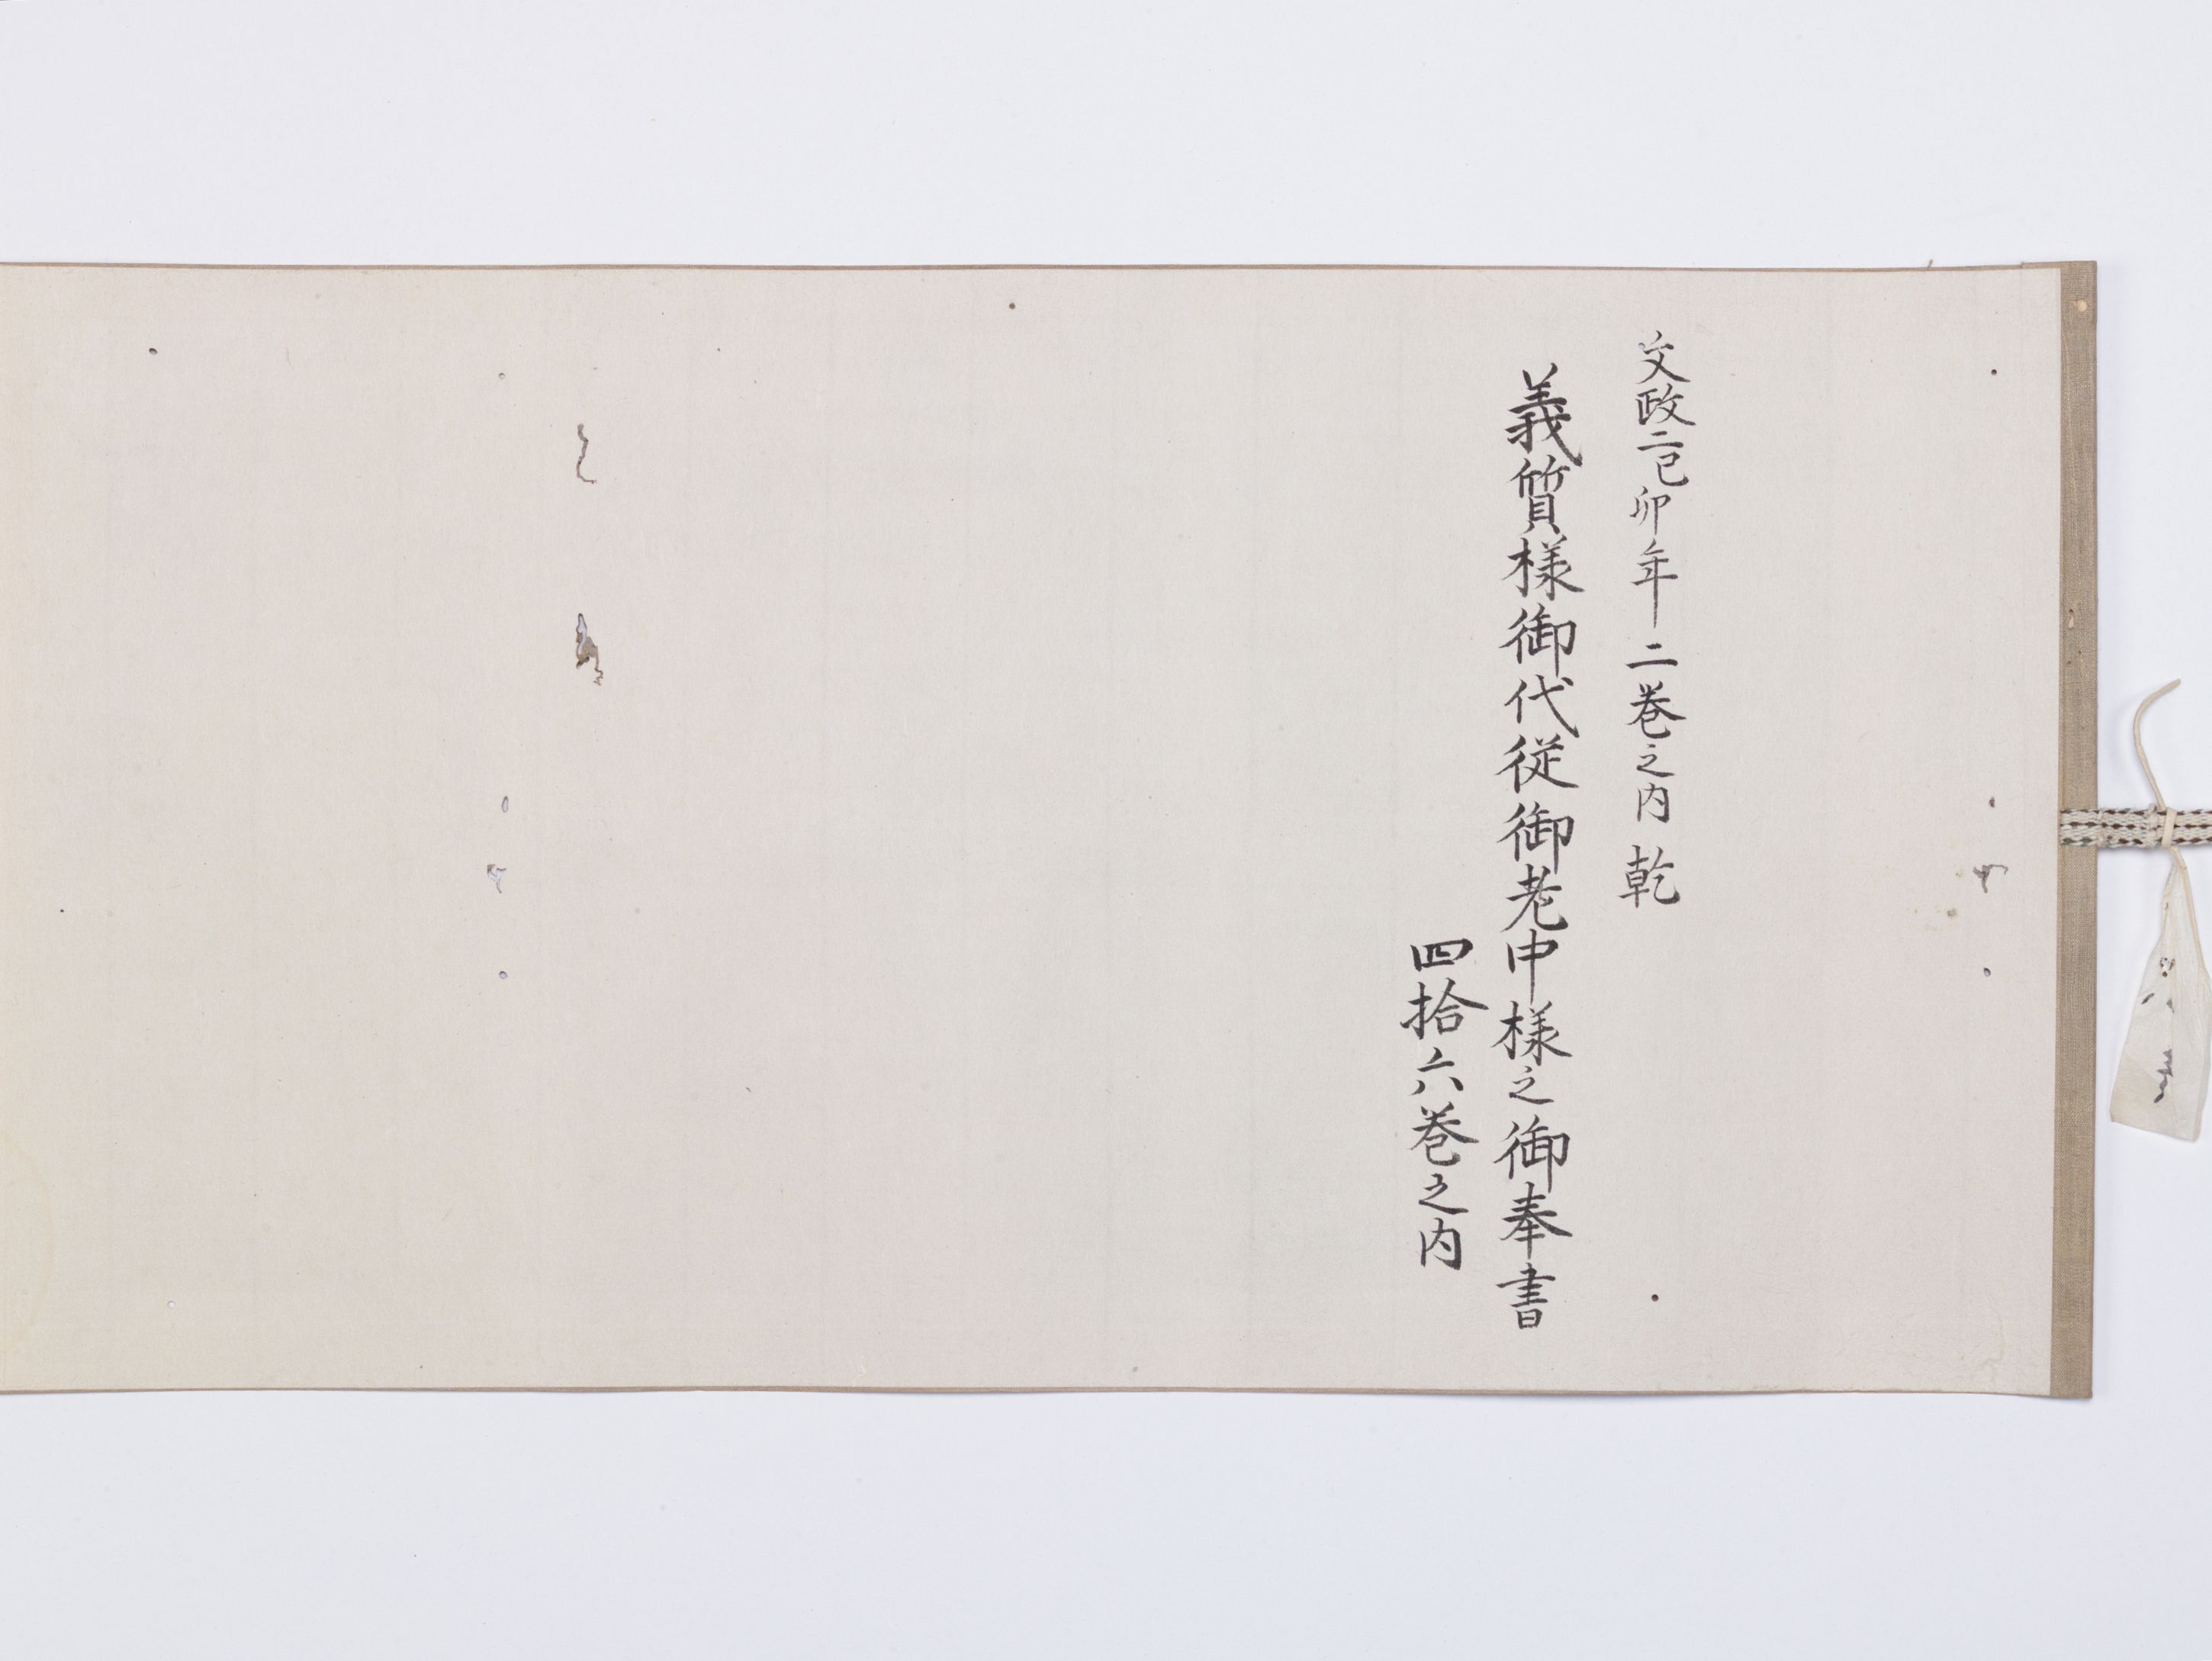 文政二己卯年 二巻之内 乾
義質様御代従御老中様之御奉書
四拾六巻之内